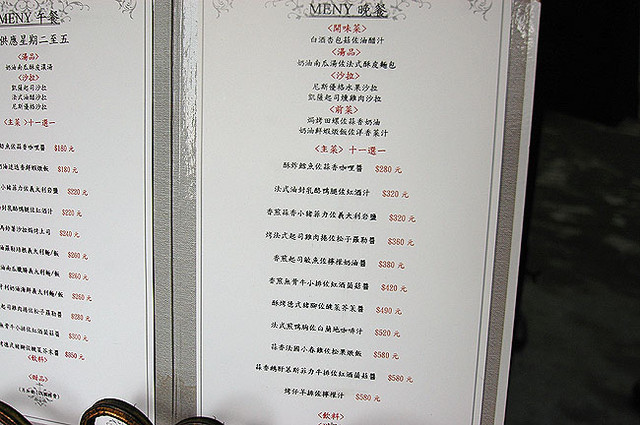 MENY 午餐
供應星期二至五
<湯品>
奶油南瓜酥皮濃湯
<沙拉>
凱薩起司沙拉
法式油醋沙拉
尼斯優格沙拉
<主菜>十一選一
$180元
$180元
小豬菲力佐義大利岩鹽 $220元
$220元
$240元
$260元
$260元
$260元
$280元
$300元
$350元
<飲料>
<甜品>
MENY 晚餐
<開味菜>
白酒杏包菇佐油醋汁
<湯品>
奶油南瓜湯佐法式酥皮麵包
<沙拉>
尼斯優格水果沙拉
凱薩起司燻雞肉沙拉
<前菜>
焗烤田螺佐蒜香奶油
奶油鮮蝦燉飯佐洋香菜汁
<主菜> 十一選一
酥炸鱈魚佐蒜香咖哩醬 $280元
法式油封乳酪鴨腿佐紅酒汁 $320元
香煎蒜香小豬菲力佐義大利岩鹽 $320元
烤法式起司雞肉捲佐松子羅勒醬 $360元
香煎起司鮭魚佐檸檬奶油醬 $380元
香煎無骨牛小排佐紅酒蘑菇醬 $420元
酥烤德式豬腳佐酸菜芥茉醬 $490元
法式煎鴨胸佐白蘭地咖啡汁 $520元
蒜香法國小春雞佐松果燉飯 $580元
蒜香鵝肝慕斯菲力牛排佐紅酒蘑菇醬 $580元
烤仔羊排佐檸檬汁 $580元
<飲料>